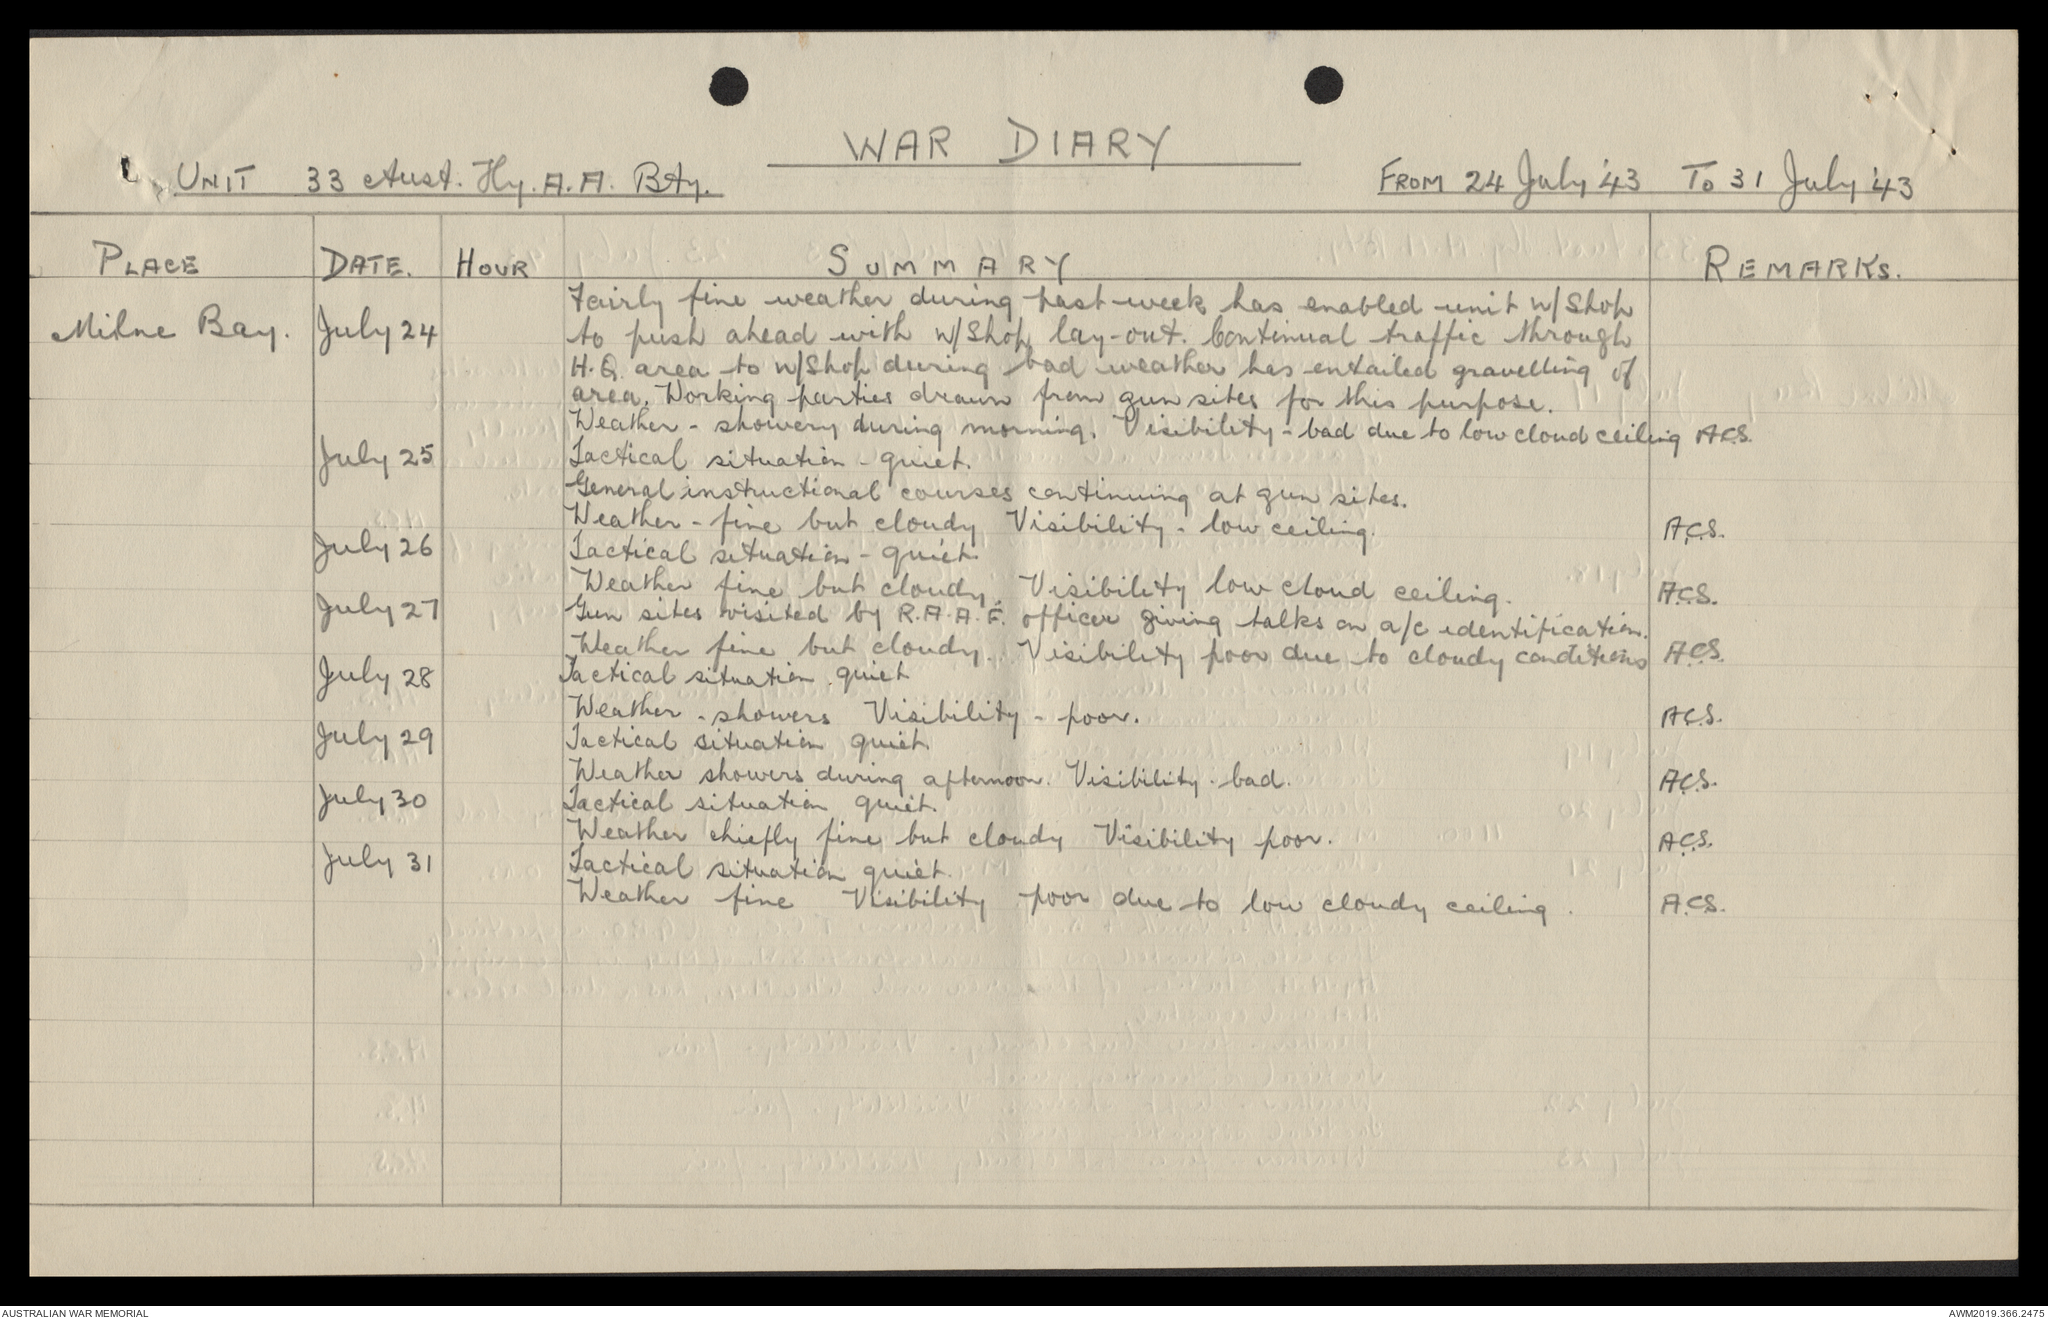 WAR DIARY
UNIT 33 Aust. Hy. A.A. Bty. FROM 24 July '43 To 31 July '43
PLACE DATE. HOUR SUMMARY REMARKS.
Milne Bay. July 24 Fairly fine weather during past week has enabled unit w/Shop
to push ahead with w/Shop lay-out. Continual traffic through
H.Q. area to w/Shop during bad weather has entailed gravelling of
area. Working parties drawn from gun sites for this purpose.
Weather - showery during morning. Visibility - bad due to low cloud ceiling A.C.S.
July 25 Tactical situation - quiet.
General instructional courses continuing at gun sites.
Weather - fine but cloudy Visibility - low ceiling. A.C.S.
July 26 Tactical situation - quiet.
Weather fine but cloudy. Visibility low cloud ceiling. A.C.S.
July 27 Gun sites visited by R.A.A.F. officer giving talks on a/c identification.
Weather fine but cloudy. Visibility poor due to cloudy conditions A.C.S.
July 28 Tactical situation quiet
Weather - showers Visibility - poor. A.C.S.
July 29 Tactical situation quiet
Weather showers during afternoon. Visibility - bad. A.C.S.
July 30 Tactical situation quiet.
Weather chiefly fine but cloudy Visibility poor. A.C.S.
July 31 Tactical situation quiet.
Weather fine Visibility poor due to low cloudy ceiling. A.C.S.
AUSTRALIAN WAR MEMORIAL AWM2019.366.2475